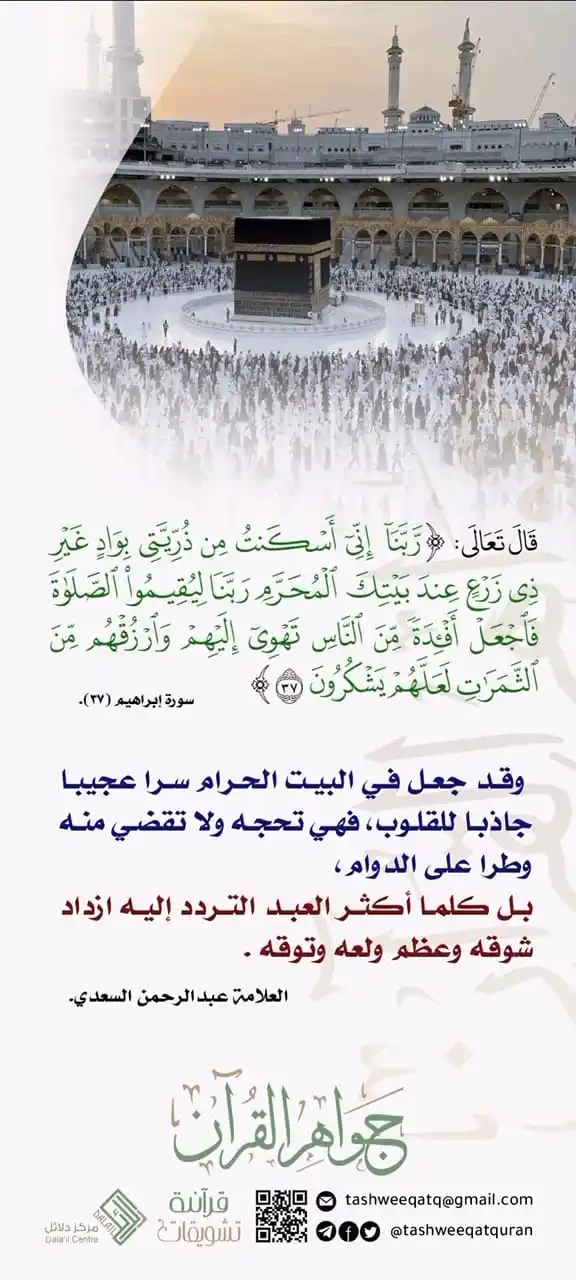 قَالَ تَعَالَى: ﴿رَبَّنَآ إِنِّىٓ أَسْكَنتُ مِن ذُرِّيَّتِى بِوَادٍ غَيْرِ
ذِى زَرْعٍ عِندَ بَيْتِكَ ٱلْمُحَرَّمِ رَبَّنَا لِيُقِيمُوا۟ ٱلصَّلَوٰةَ
فَٱجْعَلْ أَفْـِٔدَةً مِّنَ ٱلنَّاسِ تَهْوِىٓ إِلَيْهِمْ وَٱرْزُقْهُم مِّنَ
ٱلثَّمَرَٰتِ لَعَلَّهُمْ يَشْكُرُونَ ٣٧﴾ سورة إبراهيم (٣٧).
وقد جعل في البيت الحرام سرا عجيبا
جاذبا للقلوب، فهي تحجه ولا تقضي منه
وطرا على الدوام،
بل كلما أكثر العبد التردد إليه ازداد
شوقه وعظم ولعه وتوقه .
العلامة عبدالرحمن السعدي.
جواهر القرآن
tashweeqatq@gmail.com
@tashweeqatquran
قرآنية
تشويقات
DALAIL
مركز دلائل
Dala'il Centre